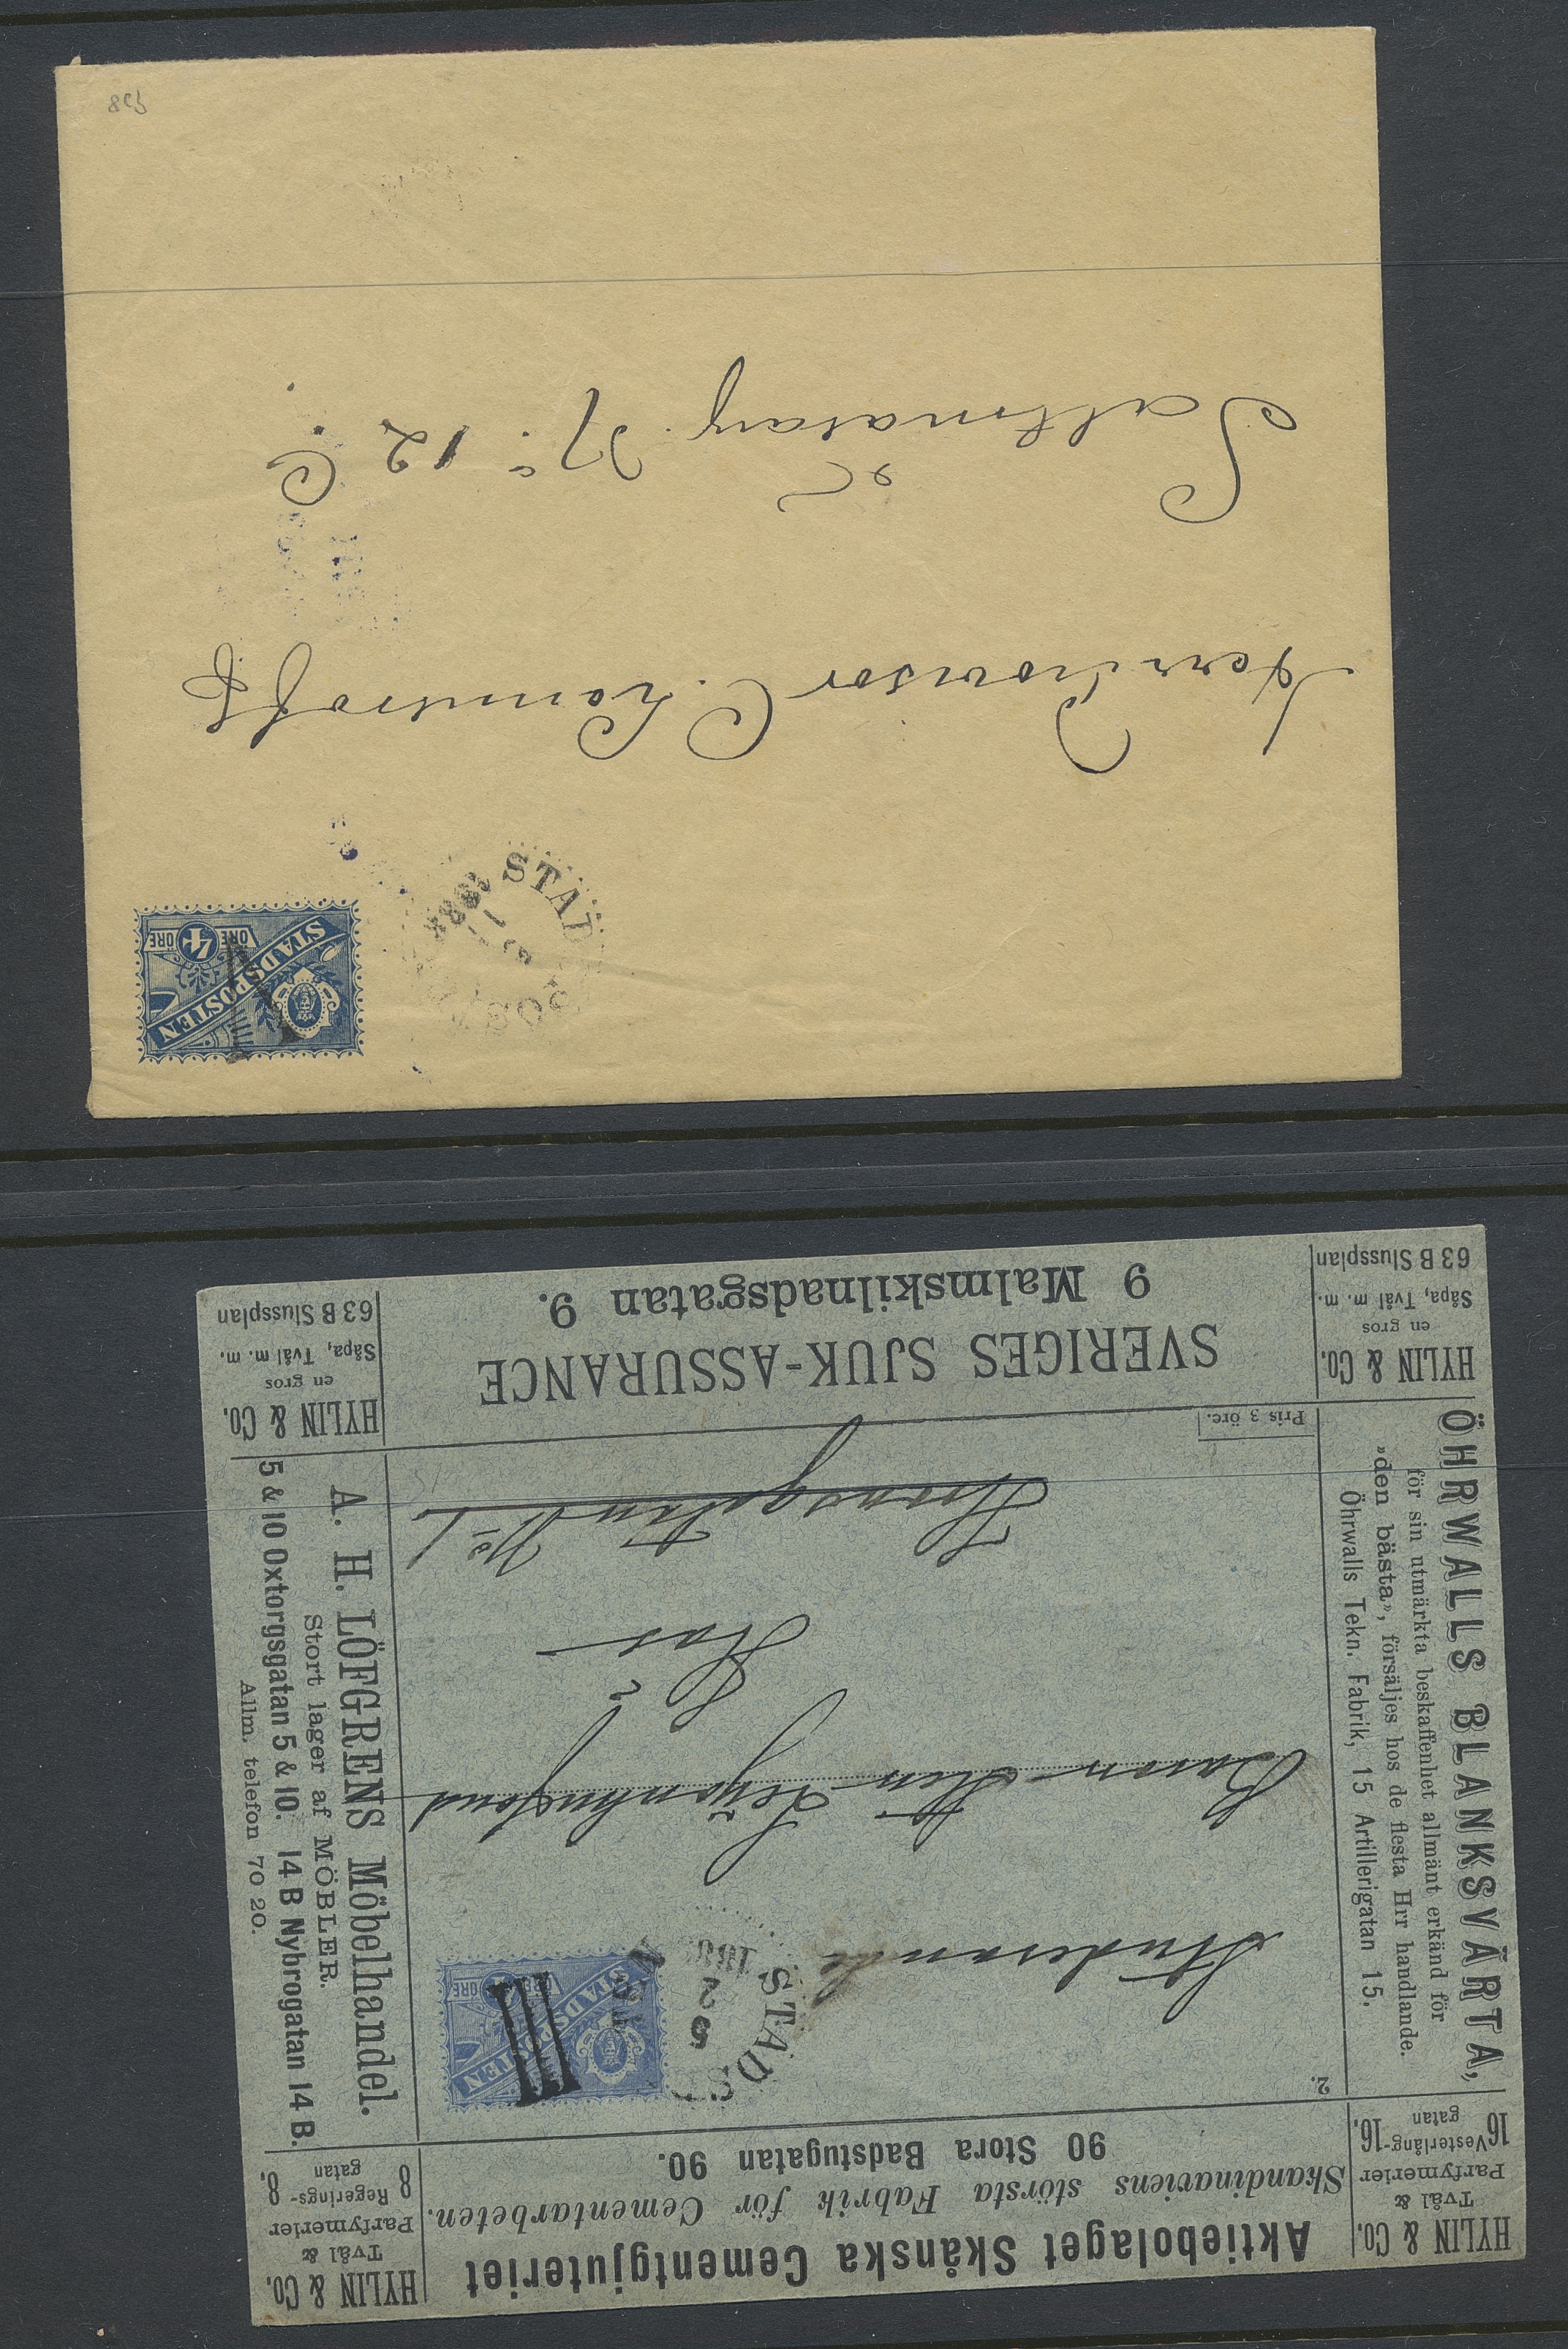 Aktiebolaget Skånska Cementgjuteriet
Skandinaviens största Fabrik för Cementarbeten.
90 Stora Badstugatan 90.
HYLIN & Co.
Tvål &
Parfymerier
16 Vesterlång- 16.
gatan
HYLIN & Co.
Tvål &
Parfymerier
8 Regerings- 8.
gatan
2.
ÖHRWALLS BLANKSVÄRTA,
för sin utmärkta beskaffenhet allmänt erkänd för
»den bästa», försäljes hos de flesta Hrr handlande.
Öhrwalls Tekn. Fabrik, 15 Artillerigatan 15.
STADSP
5
2
STADSPOSTEN
ÖRE
III
Studerande
Baron Sten Lejonhufvud
Här
No 1
A. H. LÖFGRENS Möbelhandel.
Stort lager af MÖBLER.
5 & 10 Oxtorgsgatan 5 & 10. 14 B Nybrogatan 14 B.
Allm. telefon 70 20.
Pris 3 öre.
HYLIN & Co.
en gros
Såpa, Tvål m. m.
63 B Slussplan
SVERIGES SJUK-ASSURANCE
9 Malmskilnadsgatan 9.
HYLIN & Co.
en gros
Såpa, Tvål m. m.
63 B Slussplan
STADSPOSTEN
4
ÖRE ÖRE
STADSPOS
1888
Herr Provisor C.
No. 12 C.